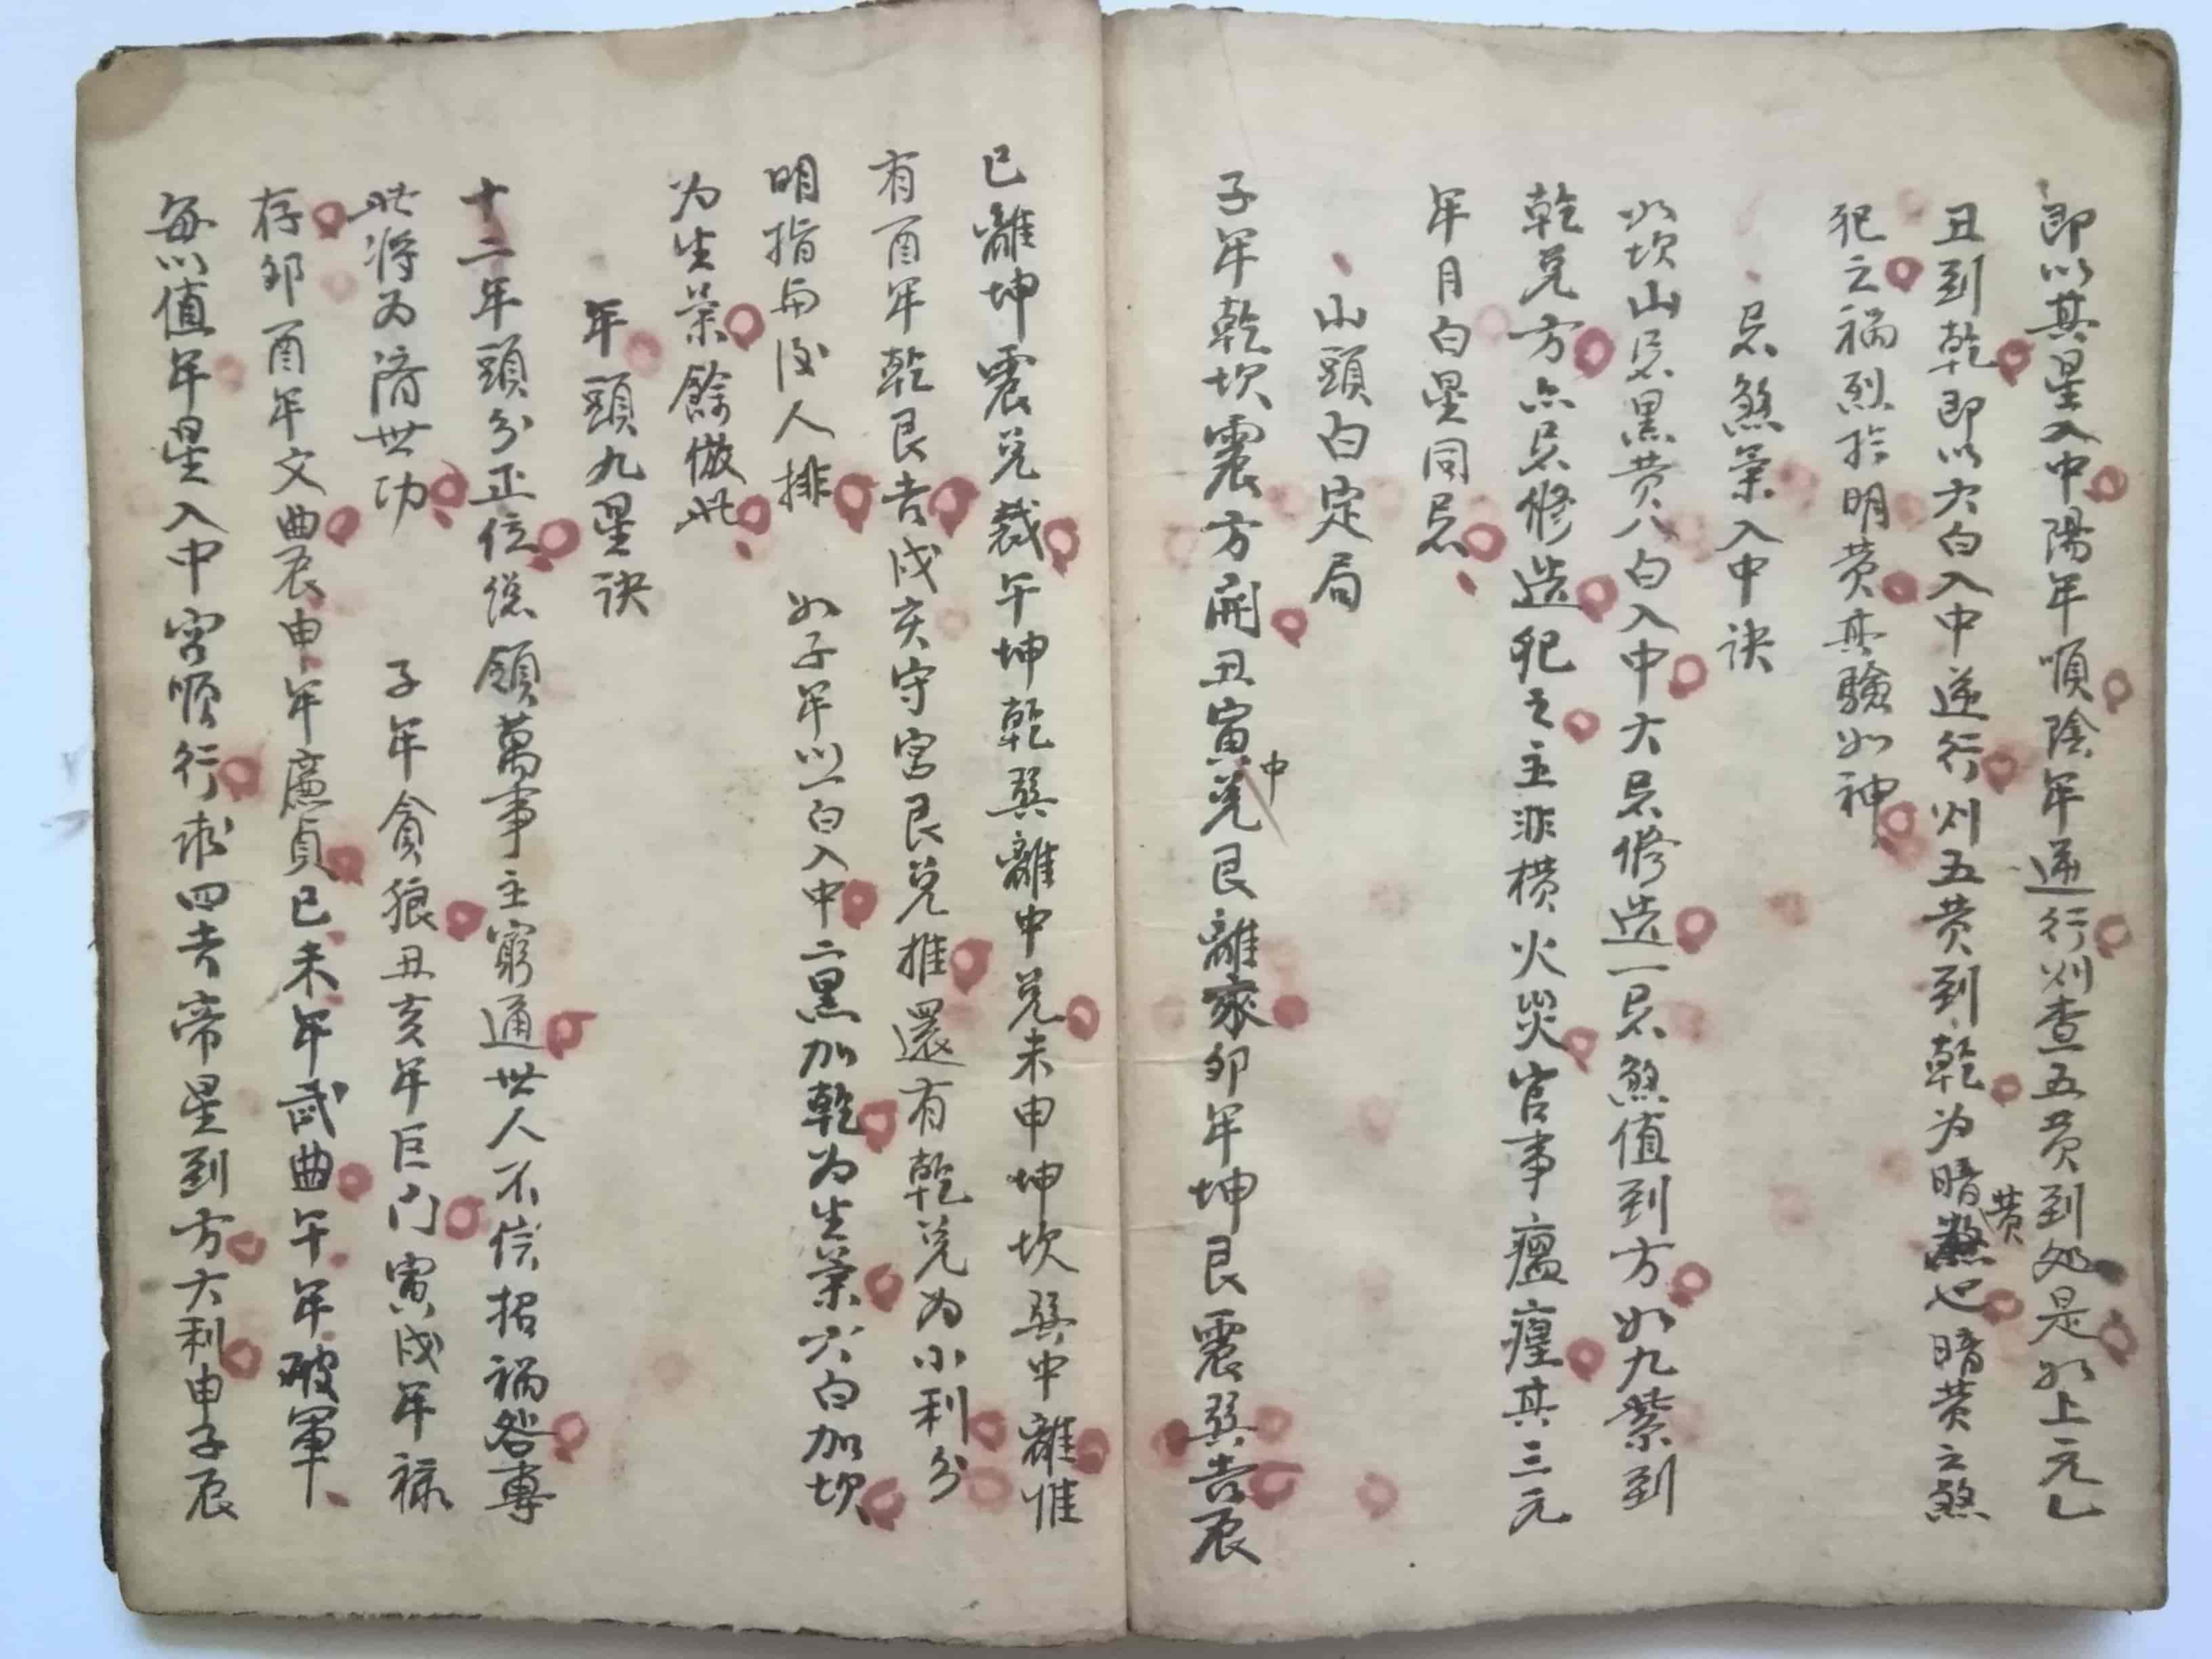 即以其星入中陽年順陰年逆行刈查五黄到処是如上元乙
丑到乾即以六白入中逆行刈五黄到乾为暗黄也暗黄之煞
犯之禍烈扵明黄其驗如神
忌煞葉入中訣
如坎山忌黑黄八白入中大忌修造一忌煞值到方如九紫到
乾兑方亦忌修造犯之主非横火災官事瘟瘟其三元
年月白星同忌
山頭白定局
子年乾坎震方開丑寅中兑艮離家卯年坤艮震巽吉辰
巳離坤震兑裁午坤乾巽離中兑未申坤坎巽中離惟
有酉年乾艮吉戌亥守宮艮兑推還有乾兑为小利分
明指与後人排 如子年以一白入中二黑加乾为生葉六白加坎
为生葉餘倣此
年頭九星訣
十二年頭分正位総領萬事主窮通世人不信招禍咎專
此将为済世功 子年貪狼丑亥年巨门寅戌年禄
存卯酉年文曲辰申年廉貞巳未年武曲午年破軍
每以值年星入中宮順行求四吉帝星到方大利申子辰